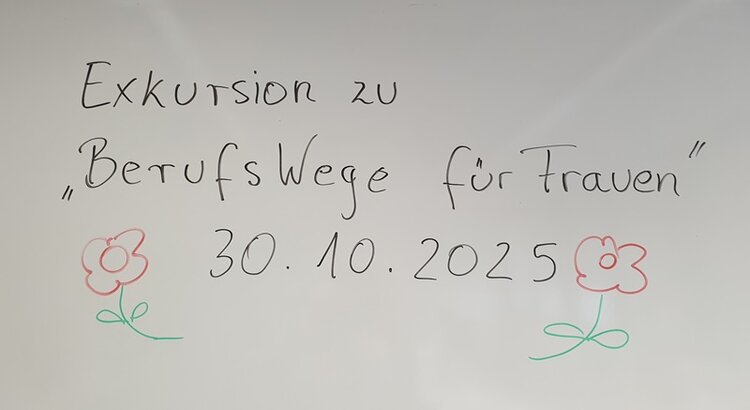 Exkursion zu
„BerufsWege für Frauen"
30.10.2025